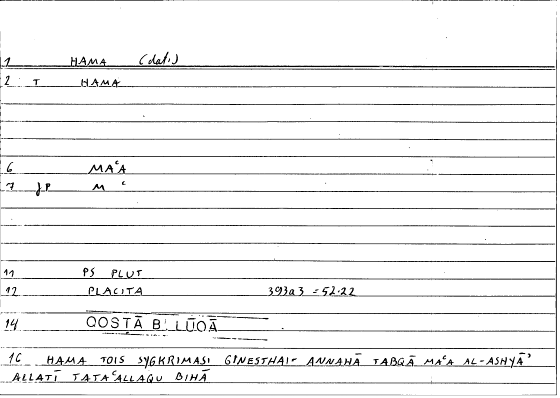 1 HAMA (dat.)
2 T HAMA
6 MAᶜA
7 JP M ᶜ
11 PS PLUT
12 PLACITA 393a3 = 52.22
14 QOSTĀ B. LŪQĀ
16 HAMA TOIS SYGKRIMASI GINESTHAI - ANNAHĀ TABQĀ MAᶜA AL-ASHYĀ'
ALLATĪ TATAᶜALLAQU BIHĀ